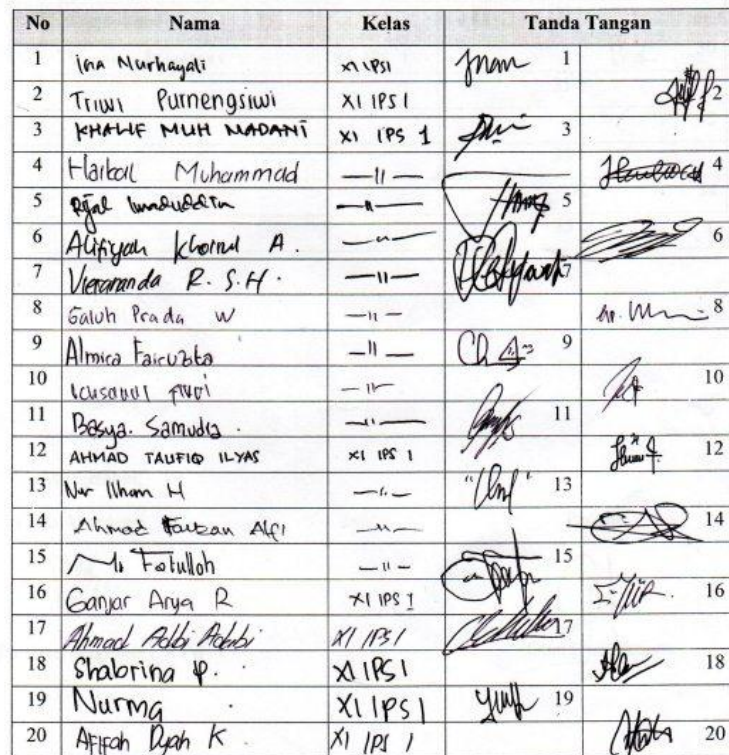 No Nama Kelas Tanda Tangan
1 Ina Nurhayati XI IPS I 1
2 Triwi Purnengsiwi XI IPS I 2
3 KHALIF MUH MADANI XI IPS 1 3
4 Haikal Muhammad —||— 4
5 Rijal Imaduddin —||— 5
6 Alifiyah Khoirul A. —||— 6
7 Vierananda R. S.H. —||— 7
8 Galuh Prada W —||— 8
9 Almira —||— 9
10 —||— 10
11 Basya. Samudra. —||— 11
12 AHMAD TAUFIQ ILYAS XI IPS 1 12
13 Nur Ilham H —||— 13
14 Ahmad Fauzan Alfi —||— 14
15 M. Fatulloh —||— 15
16 Ganjar Arya R XI IPS 1 16
17 Ahmad Adbi XI IPS I 17
18 Shabrina P. XI IPS I 18
19 Nurma XI IPS I 19
20 Afifah Dyah K XI IPS I 20